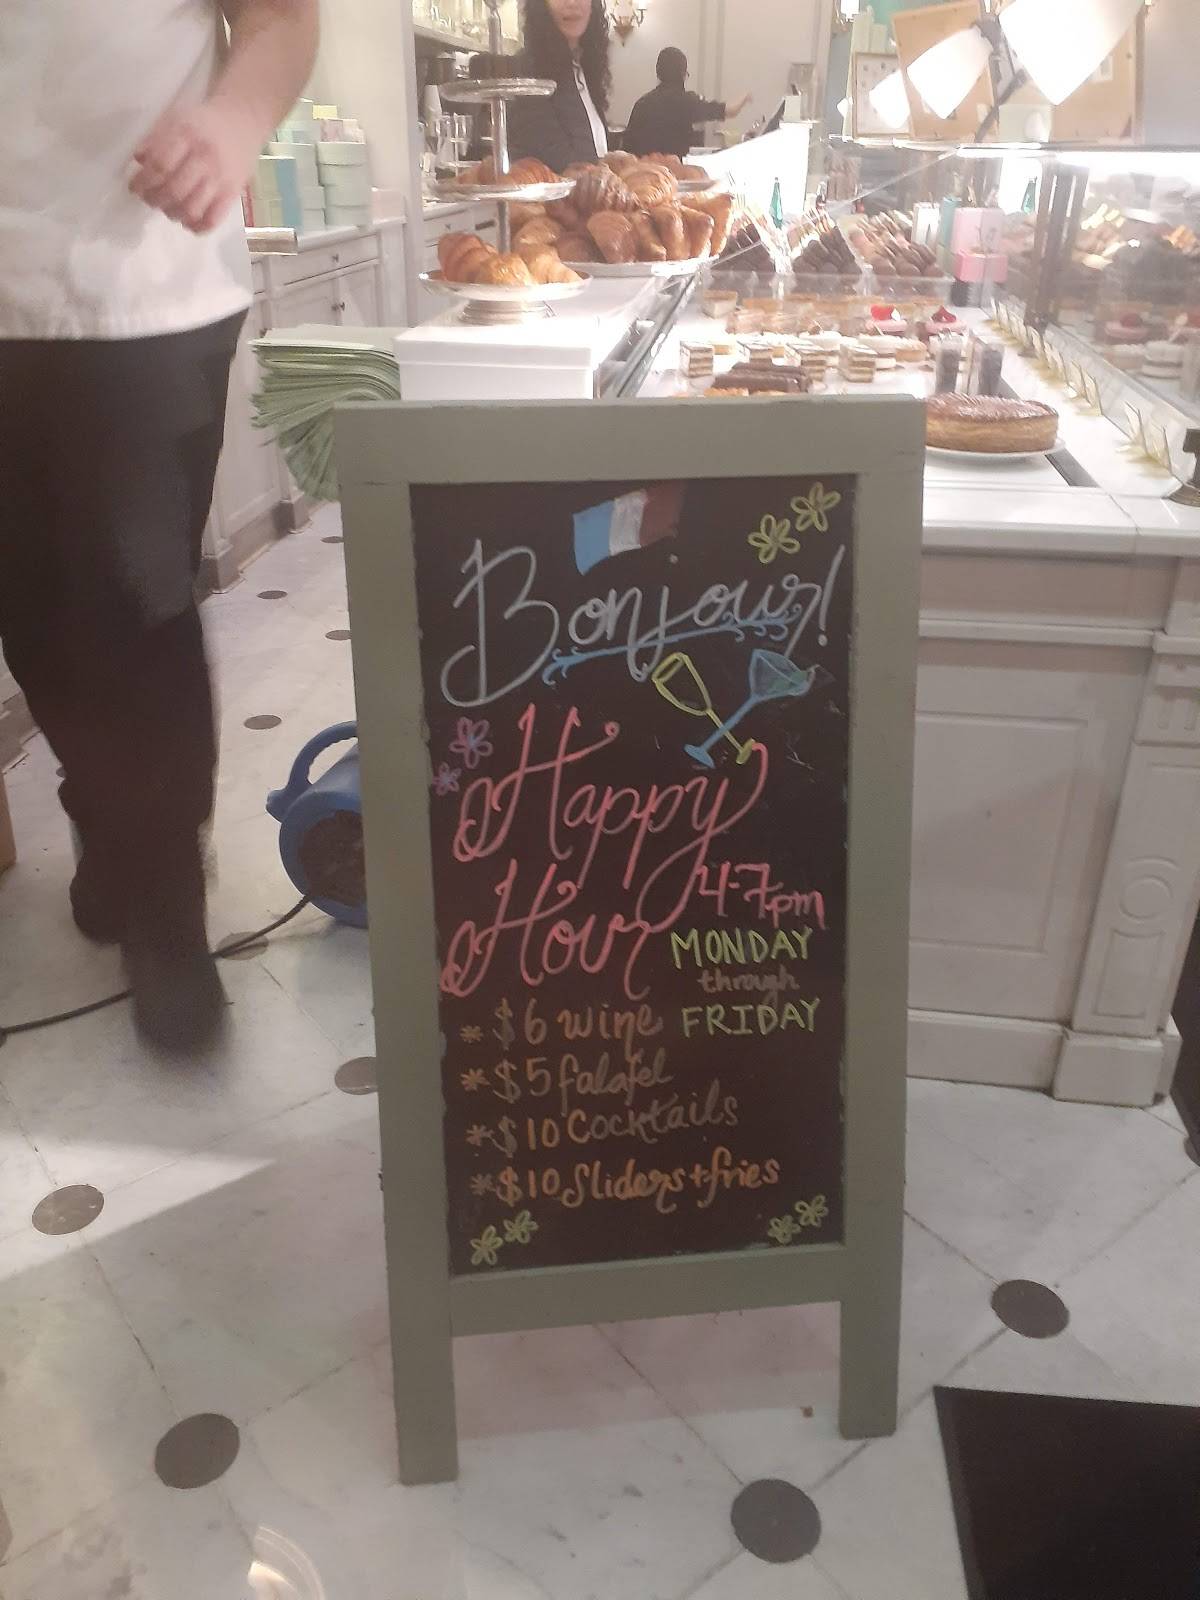 Bonjour!
Happy
Hour 4-7pm
MONDAY
through
FRIDAY
* $6 wine
* $5 falafel
* $10 Cocktails
* $10 Sliders + fries